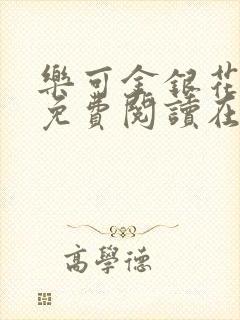 樂可金銀花
免費閱讀在
高學德